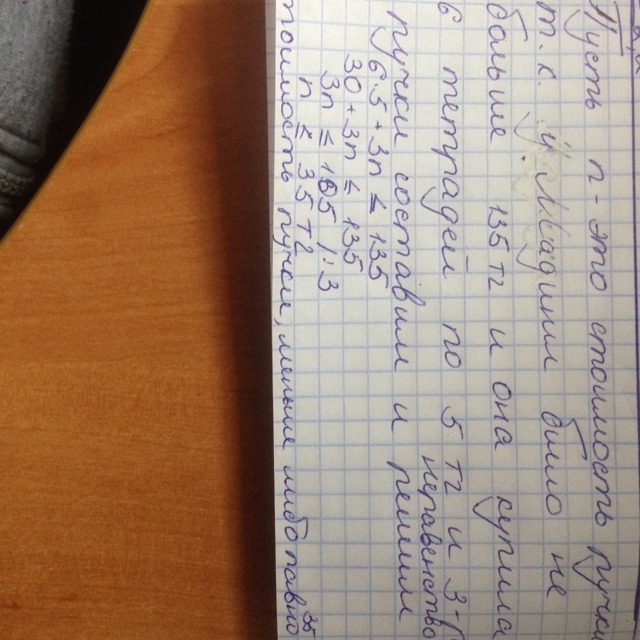 Пусть n - это стоимость ручки
т.к. у Мадины было не
больше 135 тг и она купила
6 тетрадей по 5 тг и 3
ручки составим и решим неравенство
6·5 + 3n ≤ 135
30 + 3n ≤ 135
3n ≤ 105 /:3
n ≤ 35 тг
стоимость ручки меньше либо равно 35